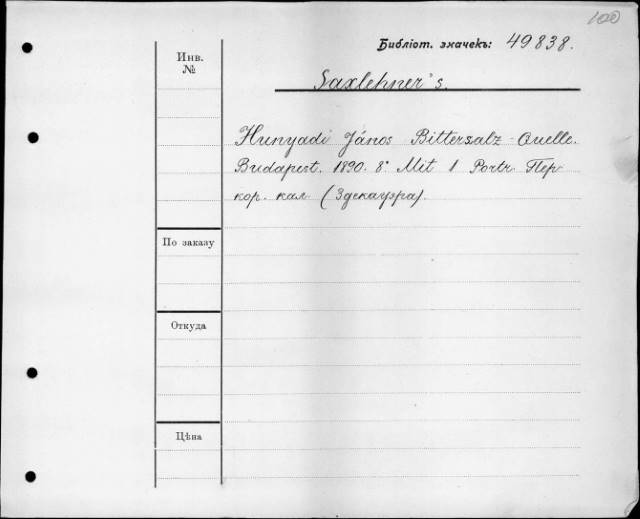 100
Библіот. значекъ: 49838.
Инв.
№
Saxlehner's.
Hunyadi János Bittersalz-Quelle.
Budapest. 1890. 8° Mit 1 Portr. Пер.
кор. кал. (Здекауэра).
По заказу
Откуда
Цѣна